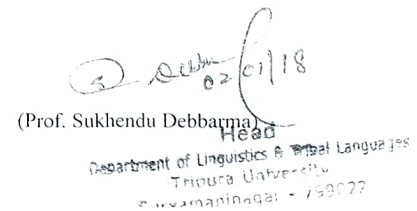 02/01/18
(Prof. Sukhendu Debbarma)
Head
Department of Linguistics & Tribal Languages
Tripura University
Suryamaninagar - 799022